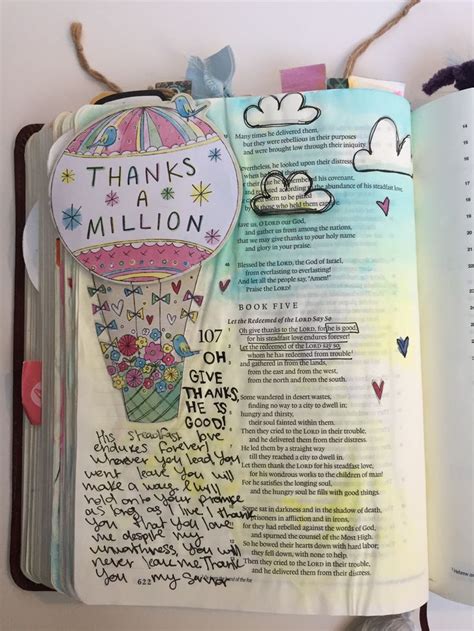 THANKS
A
MILLION
Many times he delivered them,
but they were rebellious in their purposes
and were brought low through their iniquity.
Nevertheless, he looked upon their distress,
his covenant,
the abundance of his steadfast love.
to be pitied
those who held them
Save us, O LORD our God,
and gather us from among the nations,
that we may give thanks to your holy name
and glory in your praise.
Blessed be the LORD, the God of Israel,
from everlasting to everlasting!
And let all the people say, "Amen!"
Praise the LORD!
BOOK FIVE
Let the Redeemed of the LORD Say So
107
Oh give thanks to the LORD, for he is good,
for his steadfast love endures forever!
Let the redeemed of the LORD say so,
whom he has redeemed from trouble
and gathered in from the lands,
from the east and from the west,
from the north and from the south.
Some wandered in desert wastes,
finding no way to a city to dwell in;
hungry and thirsty,
their soul fainted within them.
Then they cried to the LORD in their trouble,
and he delivered them from their distress.
He led them by a straight way
till they reached a city to dwell in.
Let them thank the LORD for his steadfast love,
for his wondrous works to the children of man!
For he satisfies the longing soul,
and the hungry soul he fills with good things.
Some sat in darkness and in the shadow of death,
prisoners in affliction and in irons,
for they had rebelled against the words of God,
and spurned the counsel of the Most High.
So he bowed their hearts down with hard labor;
they fell down, with none to help.
Then they cried to the LORD in their trouble,
and he delivered them from their distress.
OH,
GIVE
THANKS,
HE IS
GOOD!
His steadfast love
endures forever
wherever you lead you
went before you will
make a way. I will
hold onto your promise
as long as I live I thank
you that you love
me despite my
unworthiness, you will
never leave me. Thank
You my Savior
622